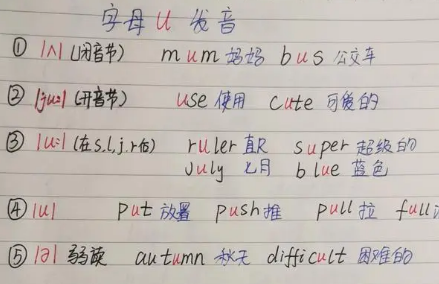 字母 u 发音
① /ʌ/ (闭音节) mum 妈妈 bus 公交车
② /ju:/ (开音节) use 使用 cute 可爱的
③ /u:/ (在s.l.j.r后) ruler 直尺 super 超级的
July 七月 blue 蓝色
④ /u/ put 放置 push 推 pull 拉 full
⑤ /ə/ 弱读 autumn 秋天 difficult 困难的